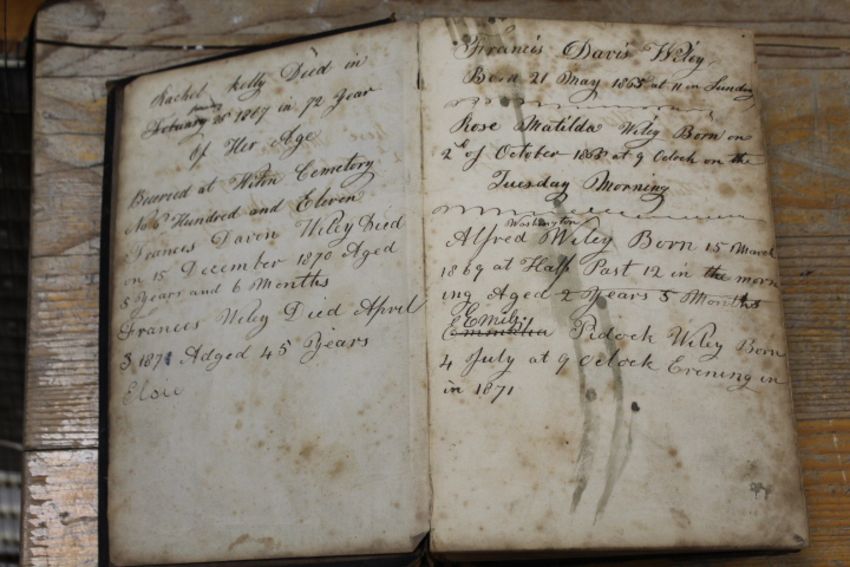 Rachel Kelly Died in
25 1867 in 72 Year
Of Her Age
Beurried at Cemetory
No 6 Hundred and Eleven
Frances Daven Wiley Died
on 15 December 1870 Aged
5 Years and 6 Months
Frances Wiley Died April
3 1871 Adged 45 Years
Elsie
Francis Davis Wiley
Born 21 May 1865 at 11 in Sunday
Rose Matilda Wiley Born on
2d of October at 9 Oclock on the
Tuesday Morning
Washington
Alfred Wiley Born 15 March
1869 at Half Past 12 in the morn
ing Aged 2 Years 5 Months
Pidock Wiley Born
4 July at 9 Oclock Evening in
in 1871